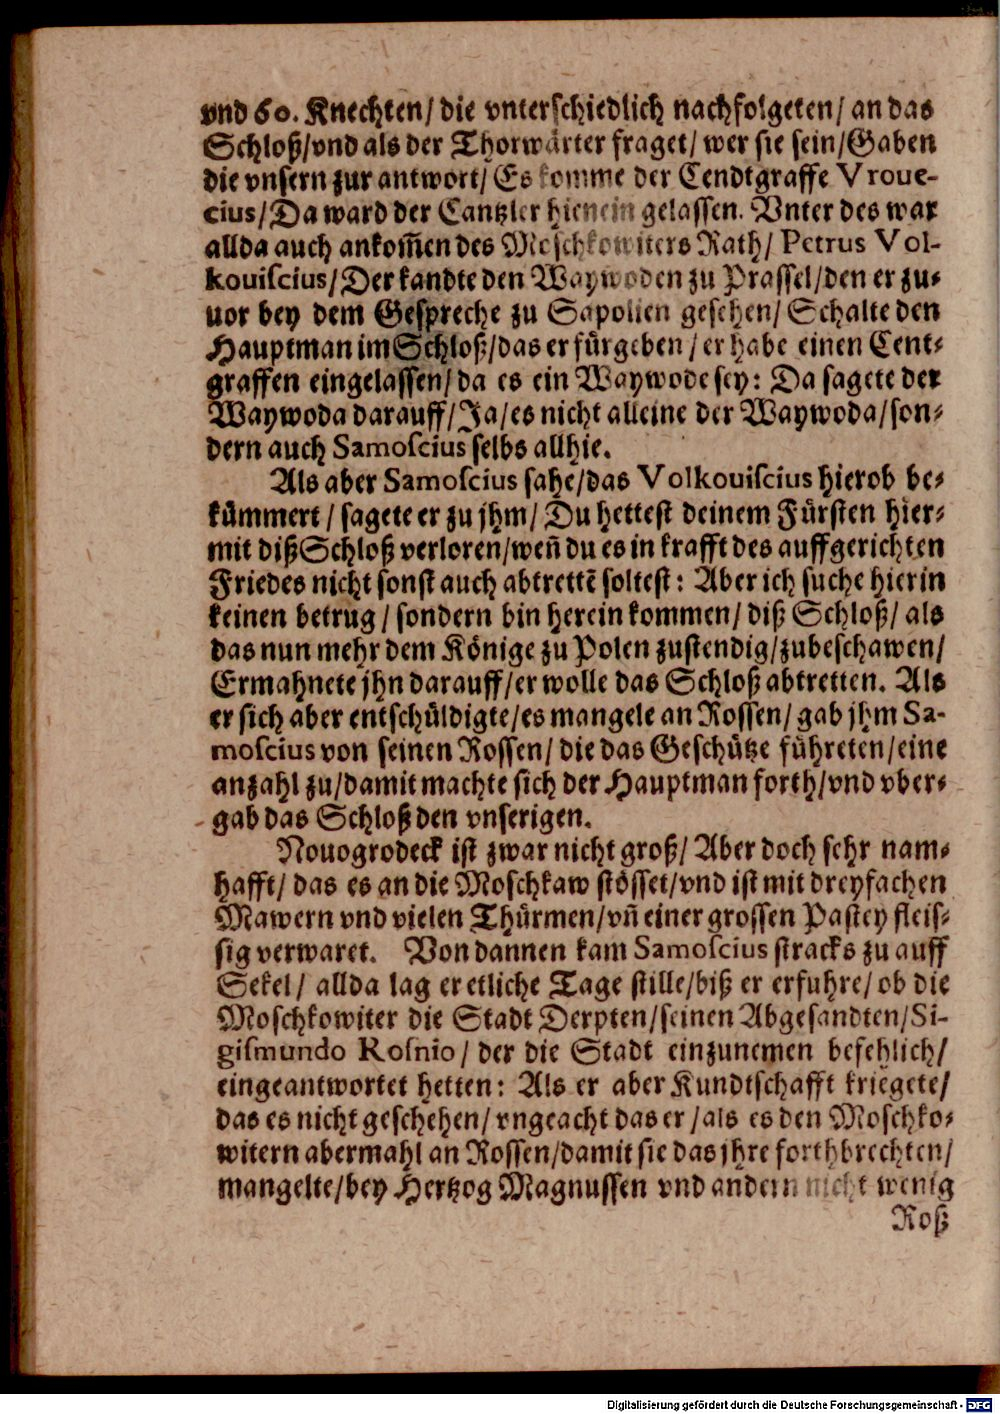 vnd 60. Knechten/ die vnterschiedlich nachfolgeten/ an das
Schloß/vnd als der Thorwärter fraget/ wer sie sein/Gaben
die vnsern zur antwort/ Es komme der Cendtgraffe Vroue-
cius/Da ward der Cantzler hienein gelassen. Vnter des war
allda auch ankom̃en des Moschkowiters Rath/ Petrus Vol-
kouiscius/Der kandte den Waywoden zu Prassel/den er zu-
uor bey dem Gespreche zu Sapolien gesehen/ Schalte den
Hauptman im Schloß/das er fürgeben/ er habe einen Cent-
graffen eingelassen/ da es ein Waywode sey: Da sagete der
Waywoda darauff/Ja/es nicht alleine der Waywoda/son-
dern auch Samoscius selbs allhie.
Als aber Samoscius sahe/das Volkouiscius hierob be-
kümmert/ sagete er zu jhm/ Du hettest deinem Fürsten hier-
mit diß Schloß verloren/weñ du es in krafft des auffgerichten
Friedes nicht sonst auch abtrettẽ soltest: Aber ich suche hierin
keinen betrug/ sondern bin herein kommen/ diß Schloß/ als
das nun mehr dem Könige zu Polen zustendig/zubeschawen/
Ermahnete jhn darauff/er wolle das Schloß abtretten. Als
er sich aber entschüldigte/es mangele an Rossen/ gab jhm Sa-
moscius von seinen Rossen/ die das Geschütze führeten/eine
anzahl zu/damit machte sich der Hauptman forth/vnd vber-
gab das Schloß den vnserigen.
Nouogrodeck ist zwar nicht groß/ Aber doch sehr nam-
hafft/ das es an die Moschkaw stösset/vnd ist mit dreyfachen
Mawern vnd vielen Thürmen/vñ einer grossen Pastey fleis-
sig verwaret. Von dannen kam Samoscius stracks zu auff
Sekel/ allda lag er etliche Tage stille/biß er erfuhre/ ob die
Moschkowiter die Stadt Derpten/seinen Abgesandten/Si-
gismundo Rosnio/ der die Stadt einzunemen befehlich/
eingeantwortet hetten: Als er aber Kundtschafft kriegete/
das es nicht geschehen/ vngeacht das er/als es den Moschko-
witern abermahl an Rossen/damit sie das jhre forthbrechten/
mangelte/bey Hertzog Magnussen vnd andern nicht wenig
Roß
Digitalisierung gefördert durch die Deutsche Forschungsgemeinschaft - DFG